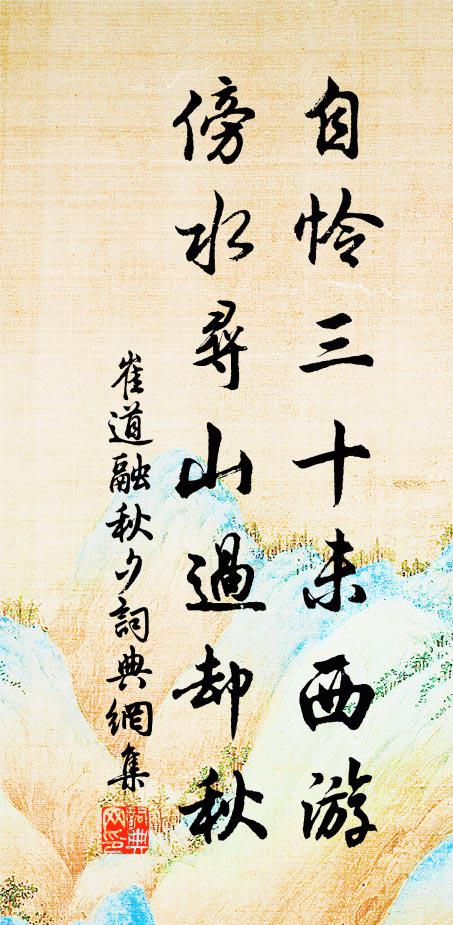 自怜三十未西游
傍水尋山過却秋
崔道融秋夕詞典網集
詞典